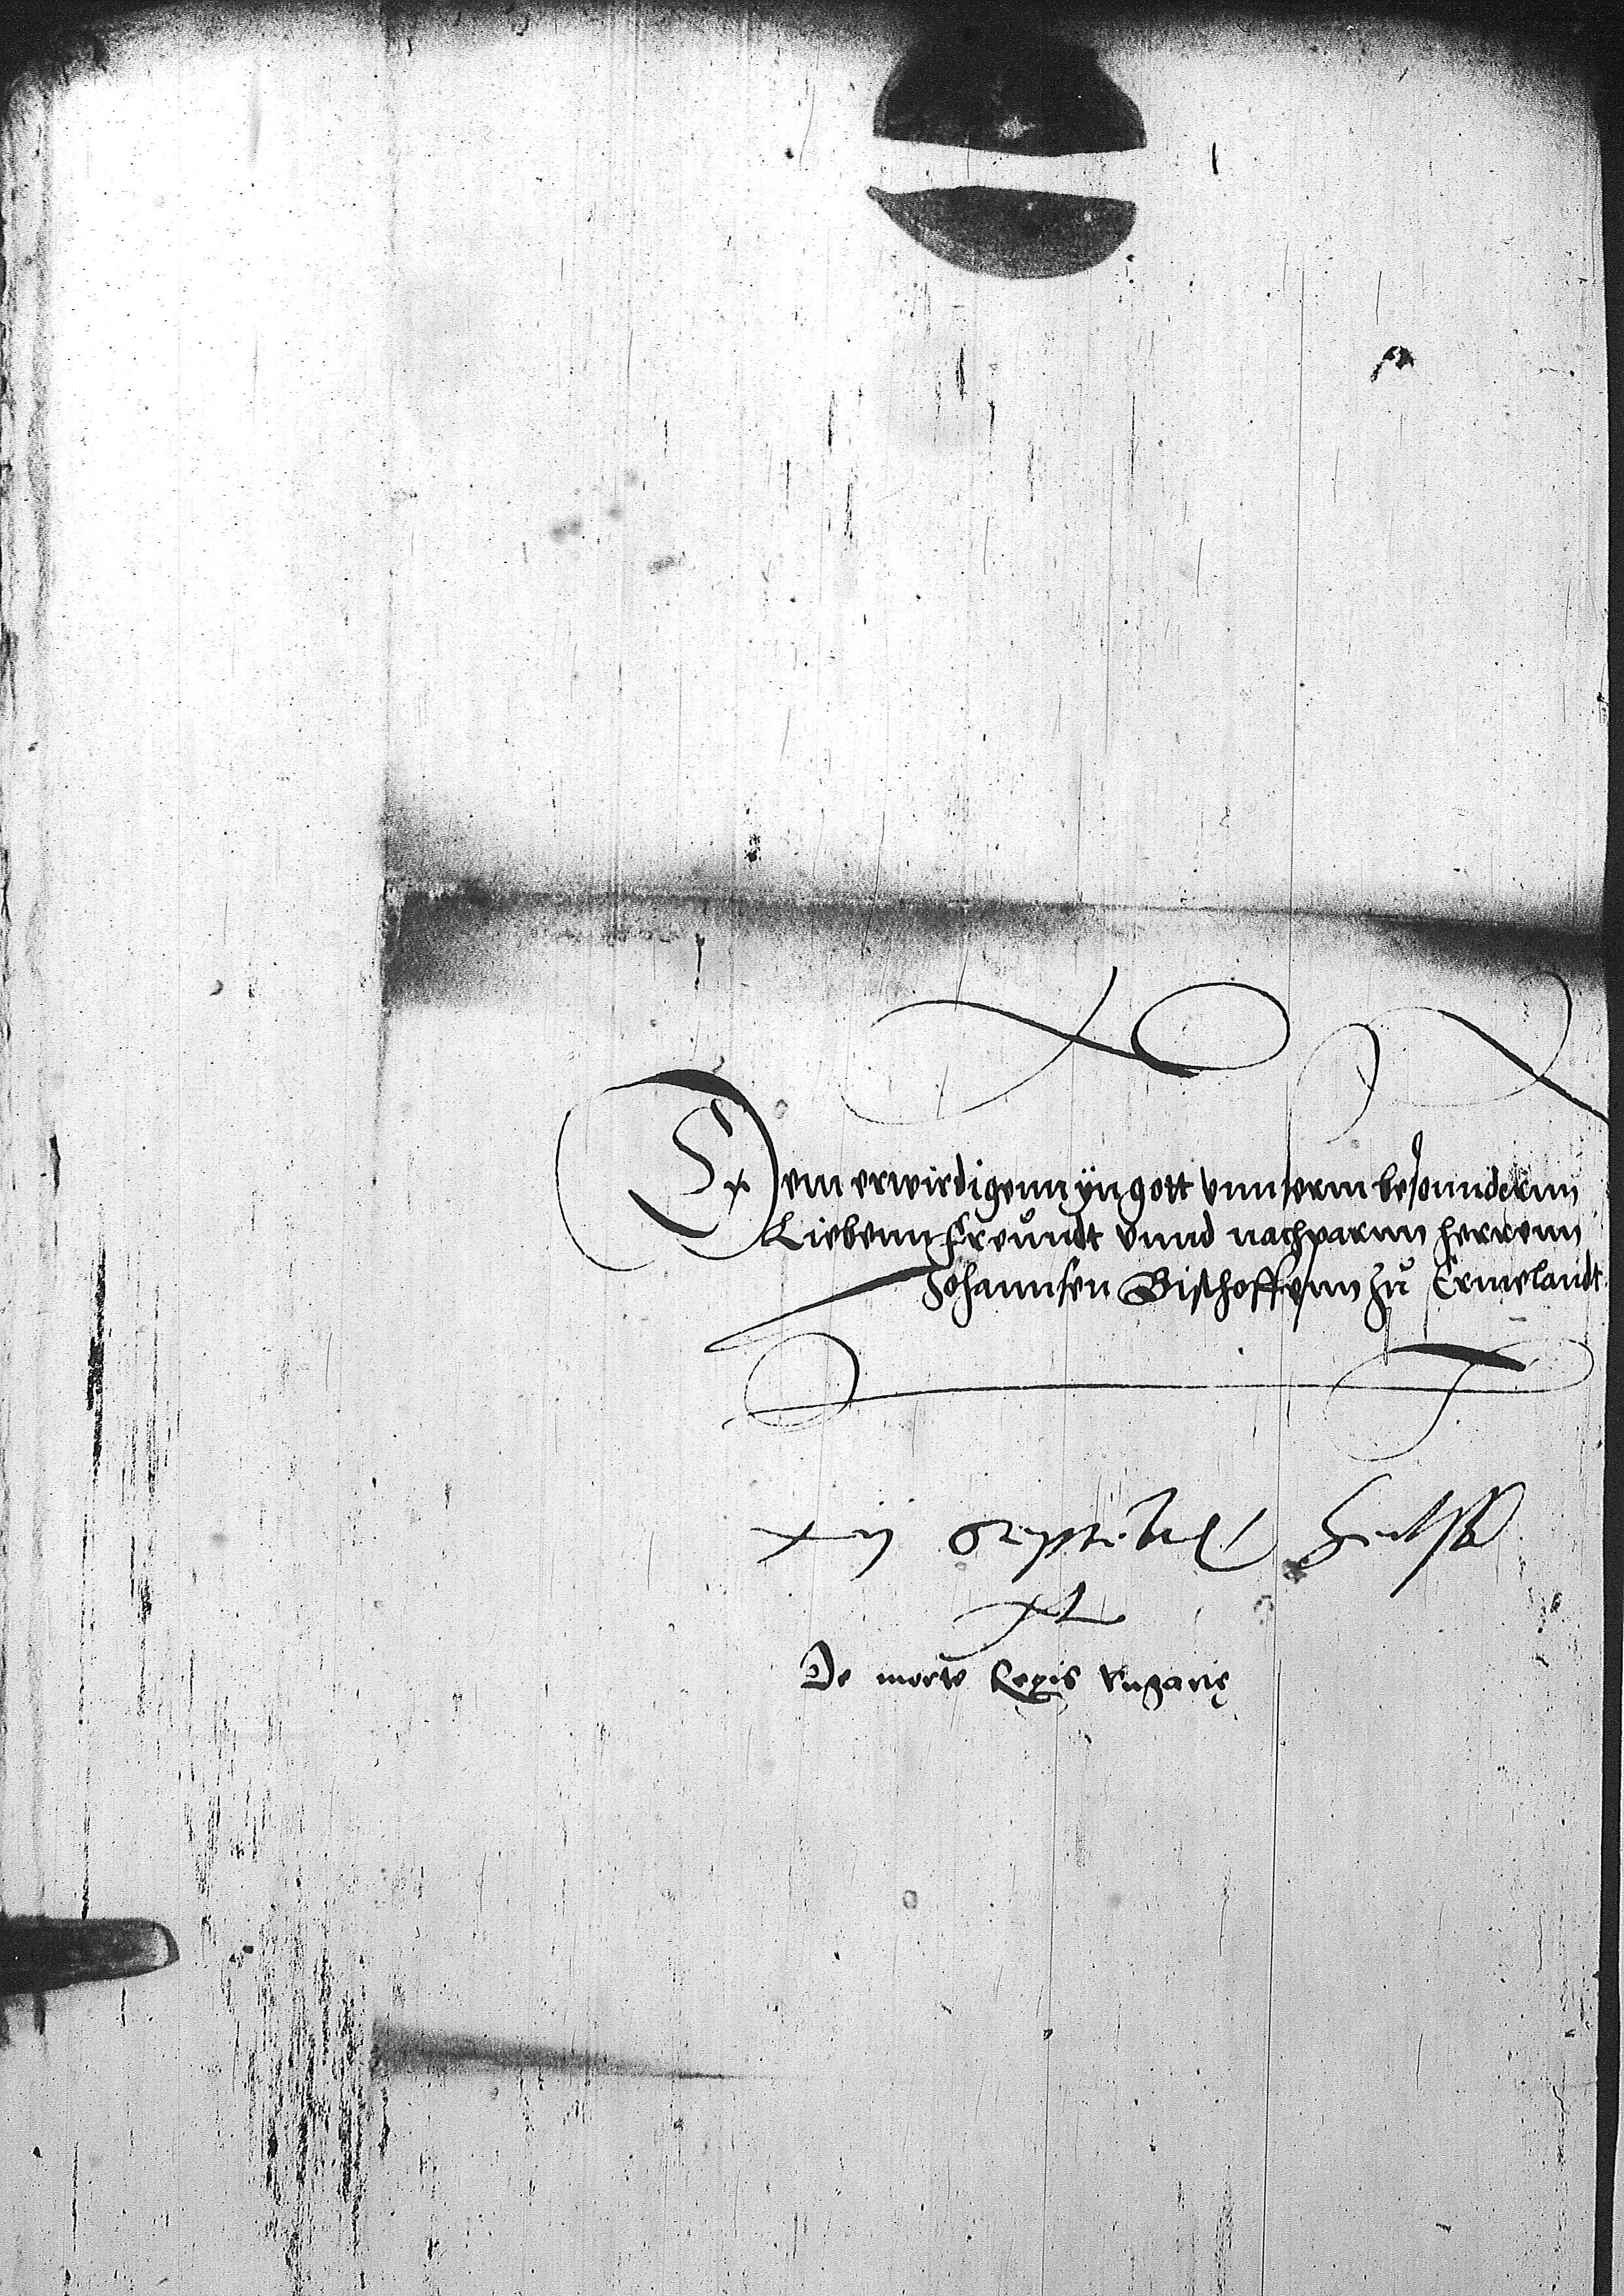 Dem erwirdigenn yn gott vnnserm besonndernn
Liebenn freundt vnnd nachparnn herrenn
Johannsen Bischoffenn zů Ermelandt
xij Septebris
xL
De morte Regis Vngarię